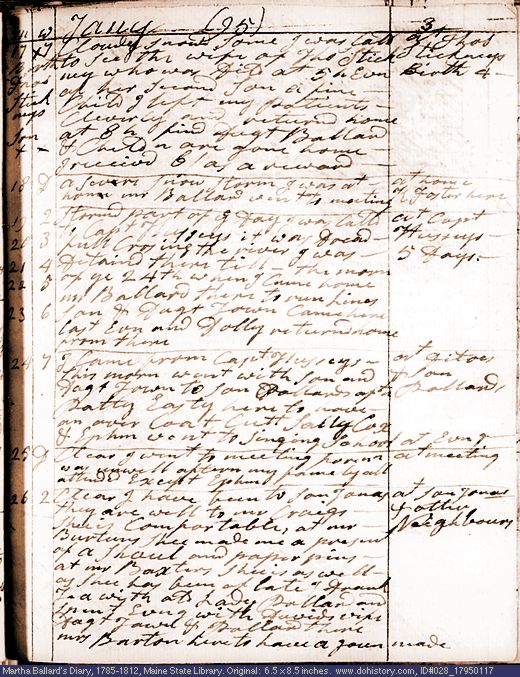 Jany (95) 3
17 7 Cloudy & snow some I was calld at Thos
to see the wife of Thos Stick Stickneys
ny who was Deld at 5 h Evn Birth 4
of her Second Son a fine
Child I left my patients
Cleverly and returnd home
at 8 h find Dagt Ballard
& Children are gone home
I received 6/ as a reward
18 D a severe snow storm I was at at home
home mr Ballard went to meeting Foster here
19 2 Stormd part of ye Day I was calld at Capt
20 3 to Capt Husseys it was Dread Husseys
full Crossing the river I was 5 Days
21 4 Detaind there till the morn
22 5 of ye 24th when I came home
mr Ballard there to run lines
23 6 Son & Dagt Town Came here
last Evn and Dolly returnd home
from there
24 7 I Came from Capt Husseys at Ditoes
this morn went with Son and & Son
Dagt Town to Son Ballards Ballards
Patty Easty here to have
an over Coat Cutt Sally Cox
& Ephm went to Singing School at Evng
25 D Clear I went to meeting foren at meeting
was unwell aftern my famely all
attend Except Ephm
26 2 Clear I have been to Son Jonas at Son Jonas
they are well to mr Craigs & other
Shee is Comfortable, at mr Neighbours
Burtuns Shee made me a present
of a Shaul and paper pins
at mr Baxters Shee is as well
as Shee has been of late I Drank
Tea with at Lady Ballard and
Spent Evng with Davids wife
Dagt Pollard & Ballard there
mrs Barton here to have a gown made
Martha Ballard's Diary, 1785-1812, Maine State Library. Original: 6.5 x 8.5 inches. www.dohistory.com, ID#028_17950117